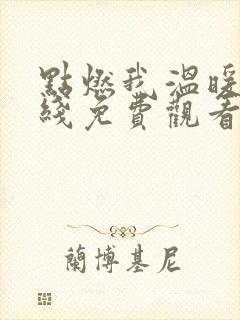 點燃我溫暖
綫免費觀看
蘭博基尼